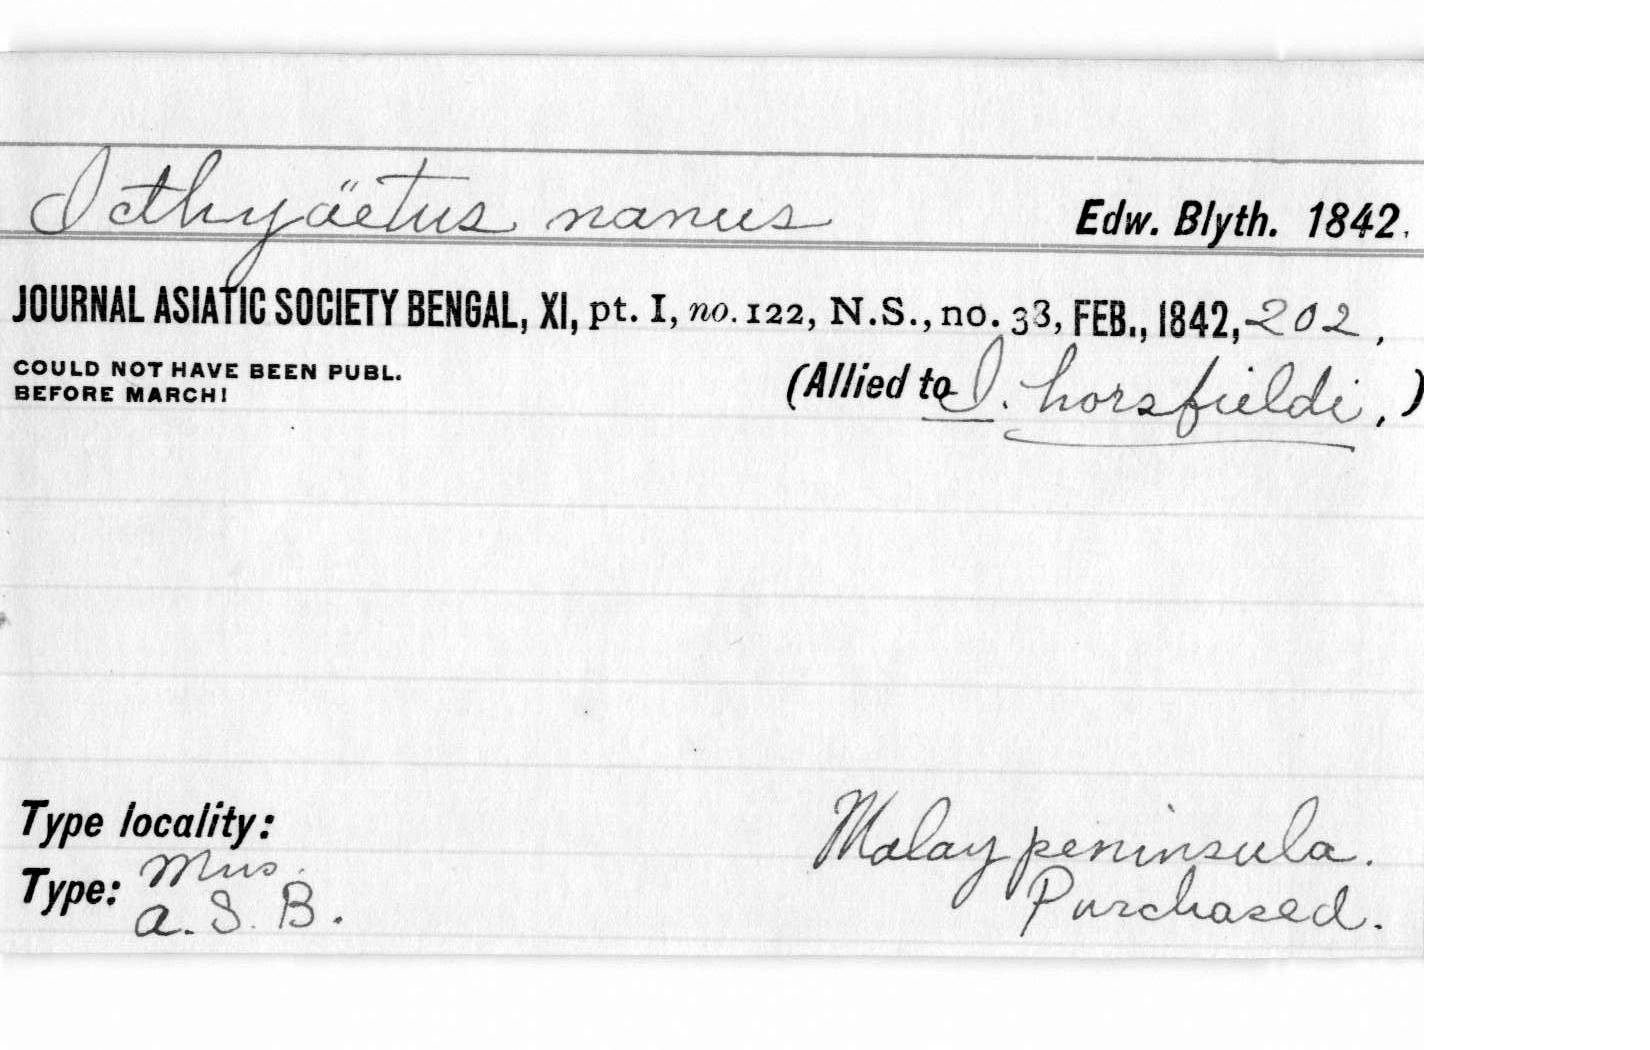 Icthyäetus nanus Edw. Blyth. 1842.
JOURNAL ASIATIC SOCIETY BENGAL, XI, pt. I, no. 122, N.S., no. 33, FEB., 1842, 202,
COULD NOT HAVE BEEN PUBL.
BEFORE MARCH!
(Allied to I. horsfieldi, )
Type locality:
Malay peninsula.
Type: Mus.
A. S. B.
Purchased.